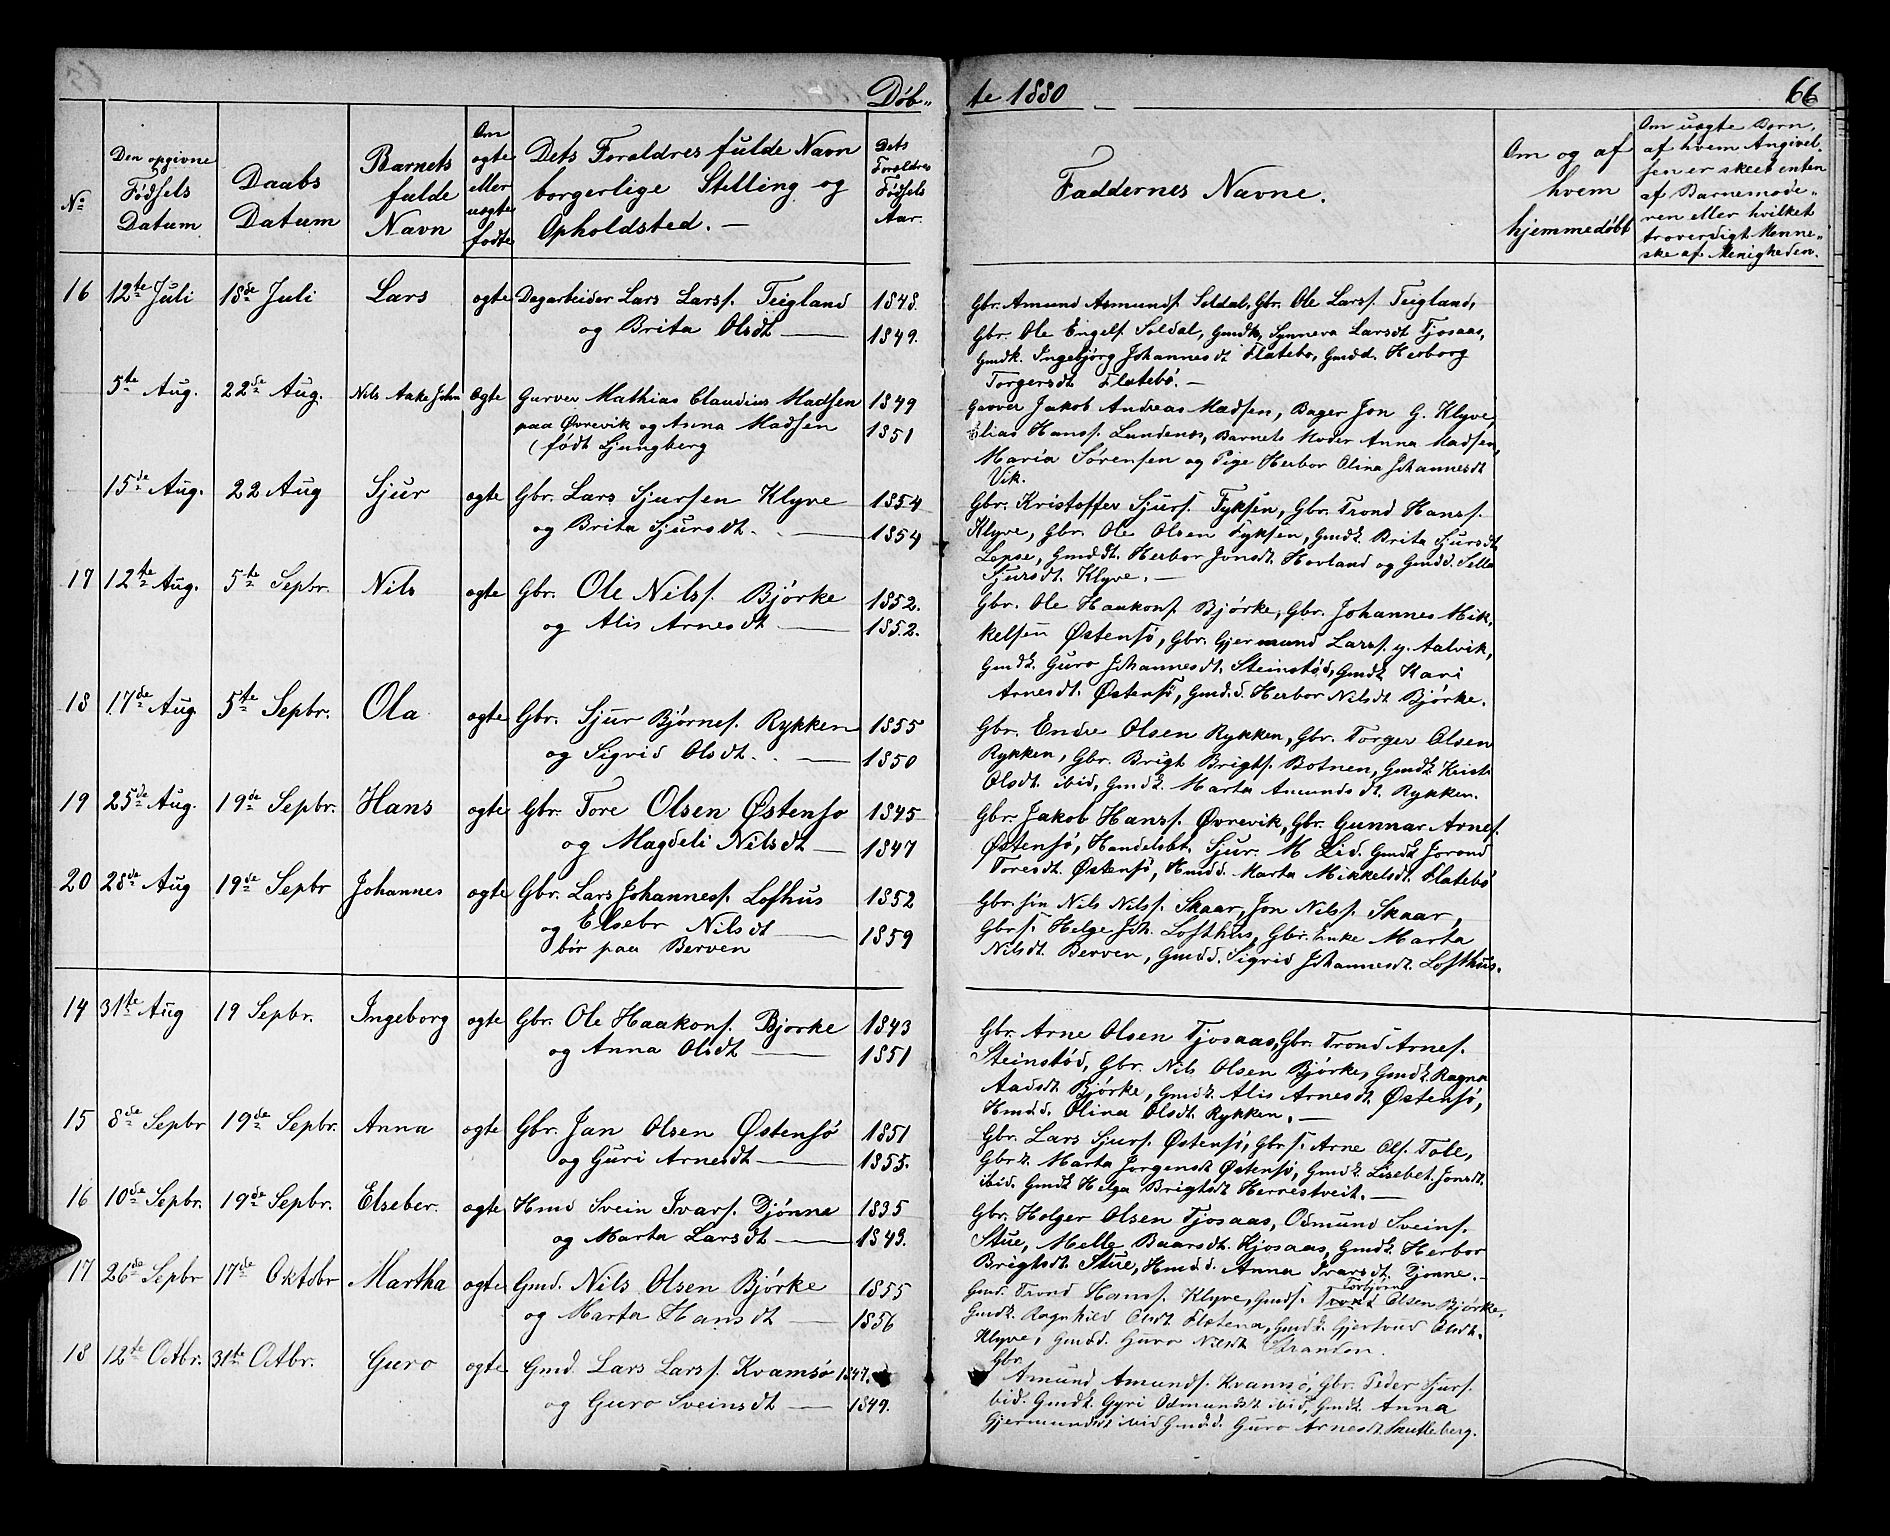 Døb-
te 1880
66
No
Den opgivne Fødsels Datum
Daabs Datum
Barnets fulde Navn
Om ægte eller uægte fødte
Dets Forældres fulde Navn borgerlige Stilling og Opholdsted. —
Dets Forældres Fødsels Aar.
Faddernes Navne.
Om og af hvem hjemmedøbt
Om uægte Børn, af hvem Angivelsen er skeet enten af Barnemoderen eller hvilket troverdigt Menneske af Menigheden.
16 12te Juli 18de Juli Lars ægte Dagarbeider Lars Larss. Teigland 1848.
og Brita Olsdt — 1849.
Gbr. Amund Asmunds. Soldal, Gbr. Ole Larss. Teigland,
Gbr. Ole Engels. Soldal, Gmdk. Synneva Larsdt Tjosaas,
Gmdk. Ingebjørg Johannesdt Flatebø, Gmdd. Herborg
Torgersdt Flatebø. —
5te Aug. 22de Aug. Nils Aake John Ægte Garver Mathias Claudius Madsen 1849
paa Øvrevik og Anna Madsen 1851
(født Ljungberg
Garver Jakob Andreas Madsen, Bager Jon G. Klyve,
Elias Hanss. Lundenæs, Barnets Moder Anna Madsen
Maria Sørensen og Pige Herbor Olina Johannesdt
Vik.
15de Aug. 22 Aug Sjur ægte Gbr. Lars Sjursen Klyve 1854
og Brita Sjursdt. — 1854
Gbr. Kristoffer Sjurs. Fyksen, Gbr. Trond Hanss.
Klyve, Gbr. Ole Olsen Fyksen, Gmdk. Brita Sjursdt
Lepse, Gmddt. Herbor Jonsdt. Hovland og Gmdd. Sella
Sjursdt. Klyve. —
17 12te Aug. 5te Sepbr. Nils ægte Gbr. Ole Nilss. Bjørke 1852.
og Alis Arnesdt. — 1852.
Gbr. Ole Haakons. Bjørke, Gbr. Johannes Mik-
kelsen Østensø, Gbr. Gjermund Larss. y. Aalvik,
Gmdk. Guro Johannesdt. Steinstød, Gmdk Kari
Arnesdt. Østensø, Gmd.d. Herbor Nilsdt Bjørke.
18 17de Aug 5te Sepbr. Ola ægte Gbr. Sjur Bjørnes. Rykken 1855
og Sigrid Olsdt. — 1850
Gbr. Endre Olsen Rykken, Gbr. Torger Olsen
Rykken, Gbr. Brigt Brigts. Botnen, Gmdk. Krist.
Olsdt. ibid, Gmdk. Marta Amundsdt. Rykken.
19 25de Aug. 19de Sepbr. Hans ægte Gbr. Tore Olsen Østensø 1845
og Magdeli Nilsdt — 1847
Gbr. Jakob Hanss. Øvrevik, Gbr. Gunnar Arnes.
Østensø, Handelsbt. Sjur M Lid. Gmdk Jorond
Toresdt. Østensø, Hmdd. Marta Mikkelsdt. Flatebø
20 28de Aug 19de Sepbr Johannes ægte Gbr. Lars Johanness. Lofthus 1852
og Elsebr Nilsdt — 1859
bor paa Berven
Gbr. søn Nils Nilss. Skaar, Jon Nilss. Skaar,
Gbrs. Helge Joh. Lofthus, Gbr. Enke Marta
Nilsdt. Berven, Gmdd. Sigrid Johannesdt. Lofthus.
14 31te Aug 19 Sepbr. Ingeborg ægte Gbr. Ole Haakons. Bjørke 1843
og Anna Olsdt — 1851
Gbr. Arne Olsen Tjosaas, Gbr. Trond Arnes.
Steinstød, Gbr. Nils Olsen Bjørke, Gmdk. Ragna
Aadsdt. Bjørke, Gmdk. Alis Arnesdt. Østensø,
Hmd.d. Olina Olsdt. Rykken. —
15 8de Sepbr 19de Sepbr. Anna ægte Gbr. Jan Olsen Østensø 1851
og Guri Arnesdt — 1855.
Gbr. Lars Sjurs. Østensø, Gbrs. Arne Ols. Tole,
Gbrk. Marta Jørgensdt Østensø, Gmdk. Lisebet Jonsdt.
ibid. Gmdk Helga Brigtsdt Herrestveit. —
16 10de Sepbr. 19de Sepbr. Elseber. ægte Hmd Svein Ivars. Djønne 1835
og Marta Larsdt — 1843.
Gbr. Holger Olsen Tjosaas, Odmund Sveins.
Stue, Melle Baarsdt. Kjosaas, Gmdk. Herbor
Brigtsdt Stue, Hmd.d. Anna Ivarsdt. Djonne. —
17 26de Sepbr 17de Oktobr Martha ægte Gmd. Nils Olsen Bjørke 1855
og Marta Hansdt — 1856
Gmd. Trond Hanss. Klyve, Gmds. Torbjørn Olsen Bjørke,
Gmdk. Ragnhild Olsdt Flatena, Gmdk. Gjertrud Olsdt.
Klyve, Gmdd. Guro Nilsdt Stranden.
18 12te Octbr. 31te Octbr. Guro ægte Gmd. Lars Larss. Kvamsø 1847.
og Guro Sveinsdt — 1849.
Gbr.
Amund Amunds. Kvamsø, Gbr. Peder Sjurs.
ibid. Gmdk. Gyri Odmundsdt ibid, Gmdk. Anna
Gjermundsdt ibid Gmd.d. Guro Arnesdt.